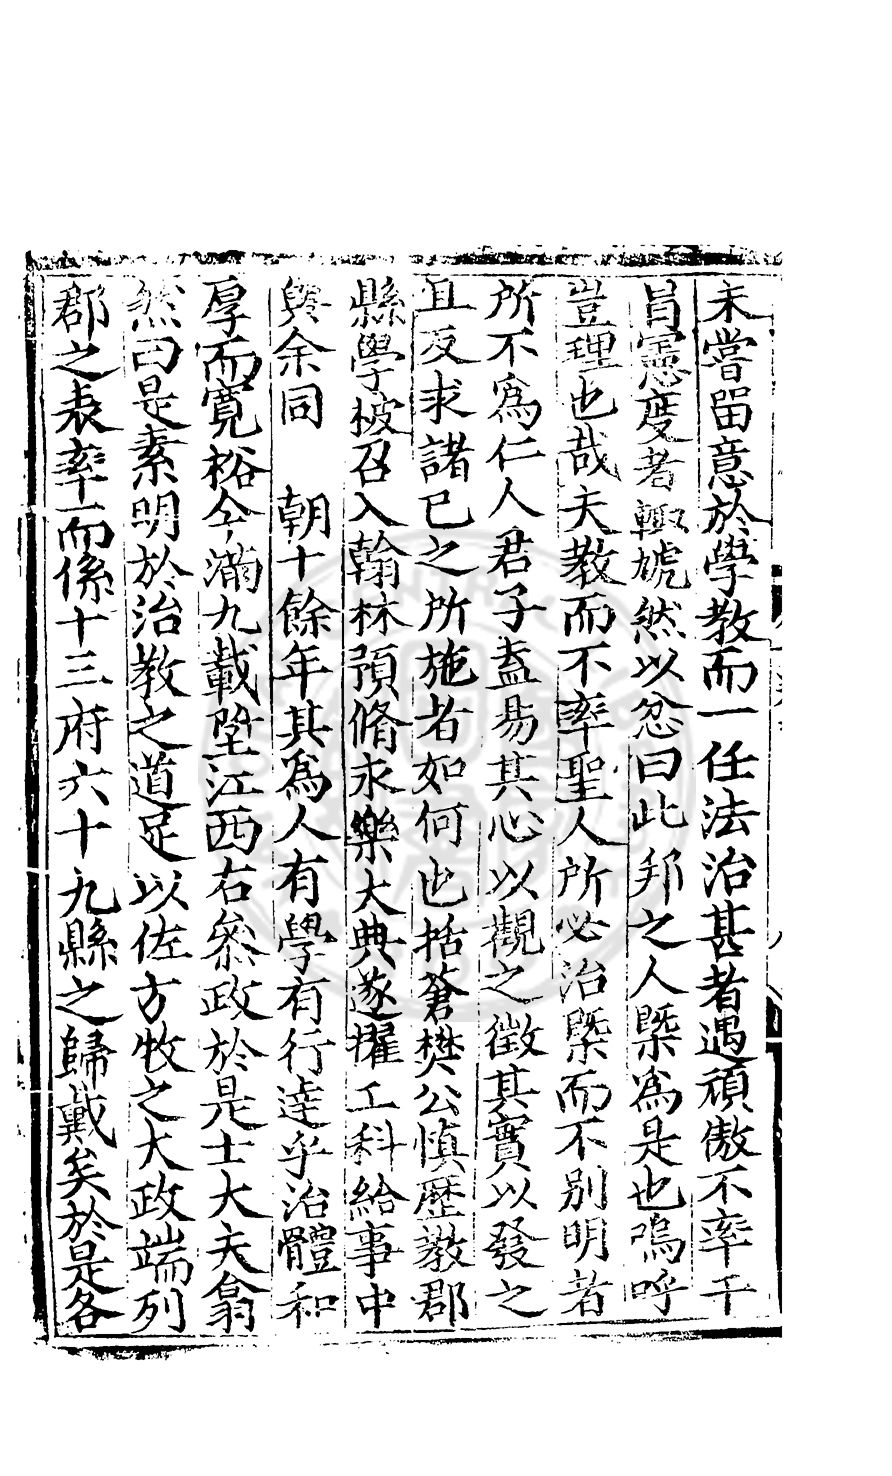 未嘗留意於學教而一任法治甚者遇頑傲不率干
冒憲度者輒虓然以忿曰此邦之人槩爲是也嗚呼
豈理也哉夫教而不率聖人所必治槩而不別明者
所不爲仁人君子盍易其心以觀之徵其實以發之
且反求諸已之所施者如何也括蒼樊公愼歷教郡
縣學被召入翰林預脩永樂大典遂擢工科給事中
與余同　朝十餘年其爲人有學有行達乎治體和
厚而寬裕今滿九載陞江西右叅政於是士大夫翕
然曰是素明於治教之道足以佐方牧之大政端列
郡之表率而係十三府六十九縣之歸戴矣於是各